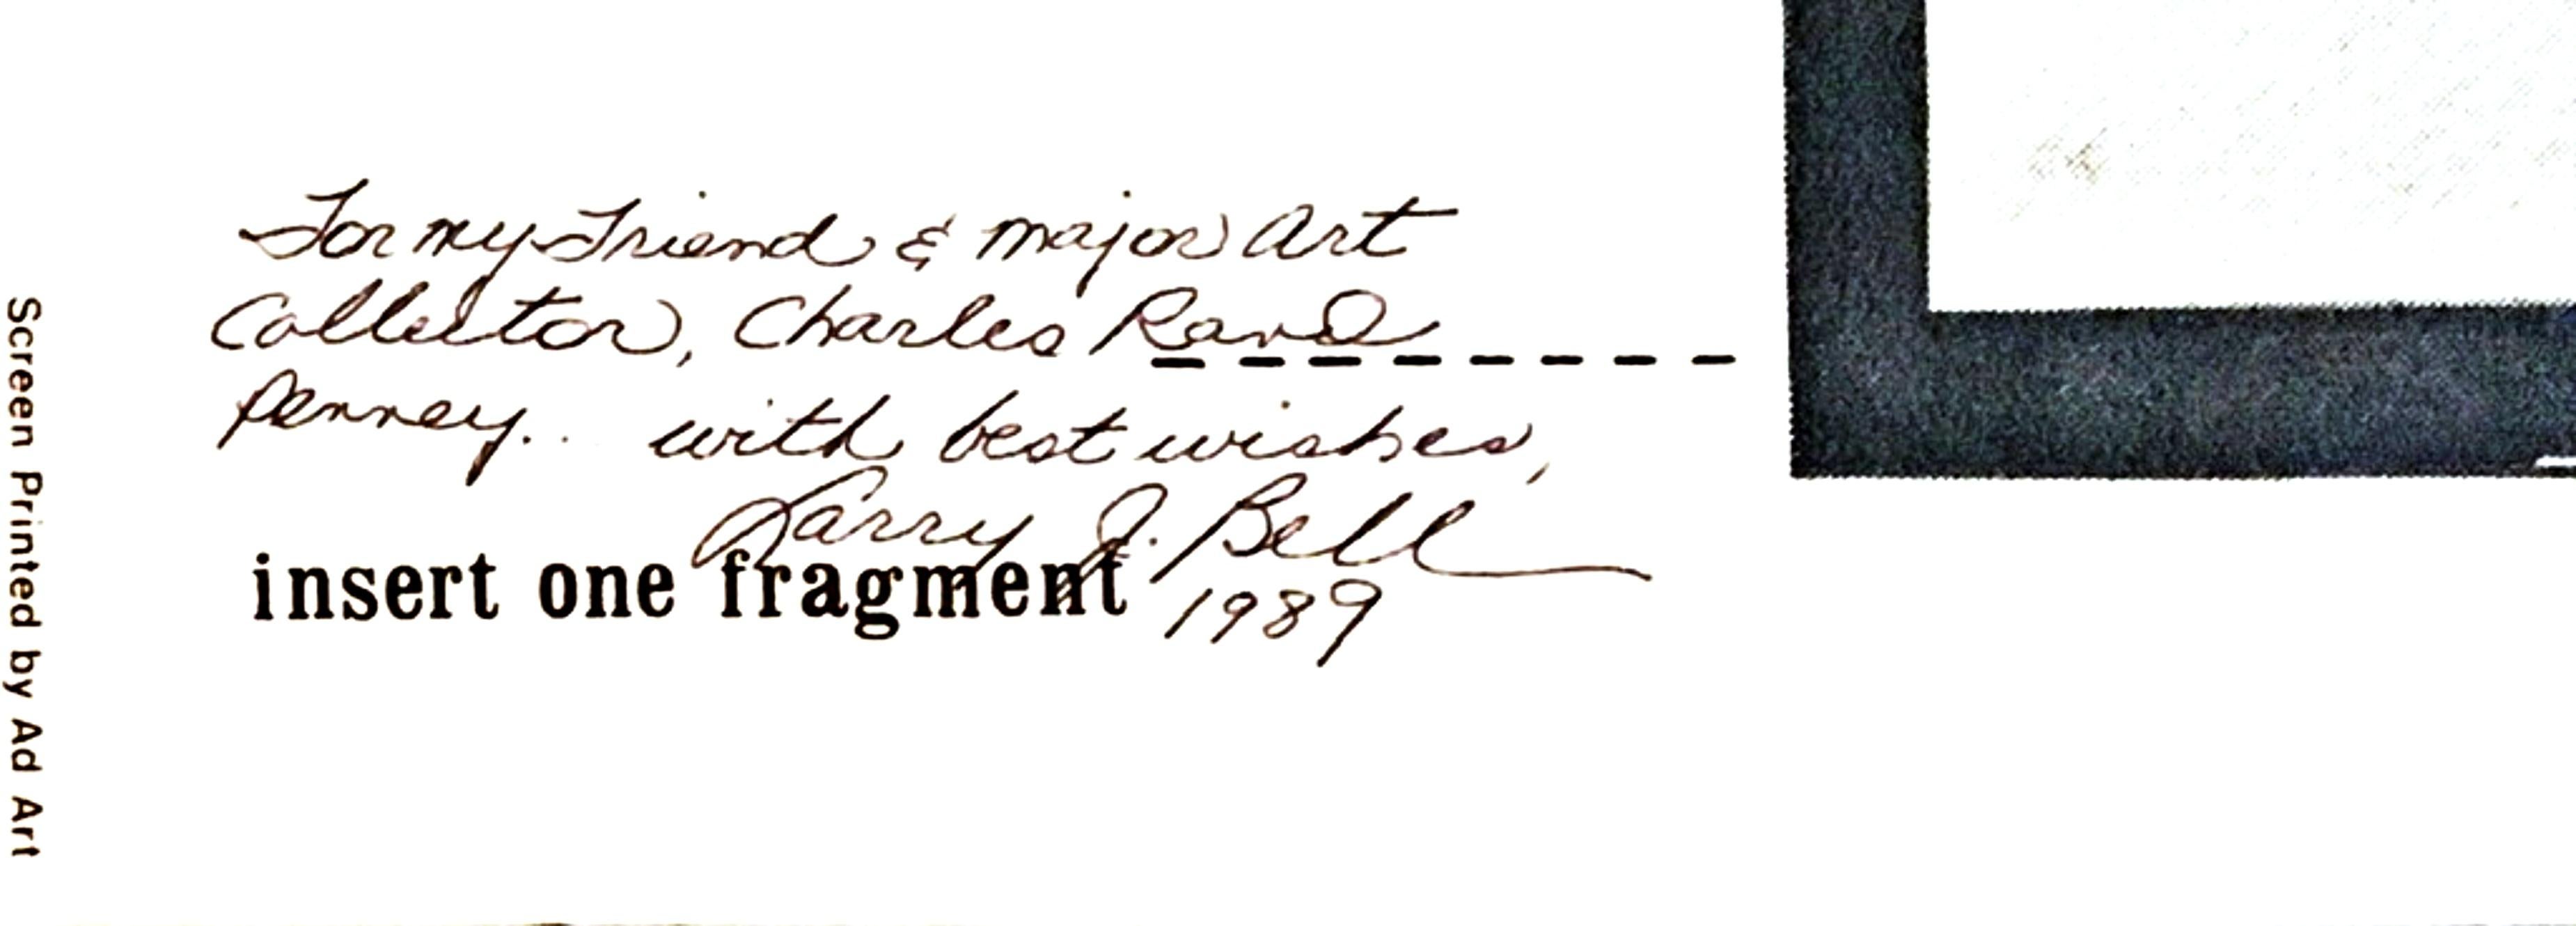 For my Friend & major Art
Collector, Charles Rand
Penney... with best wishes,
Larry J. Bell
insert one fragment
1989
Screen Printed by Ad Art